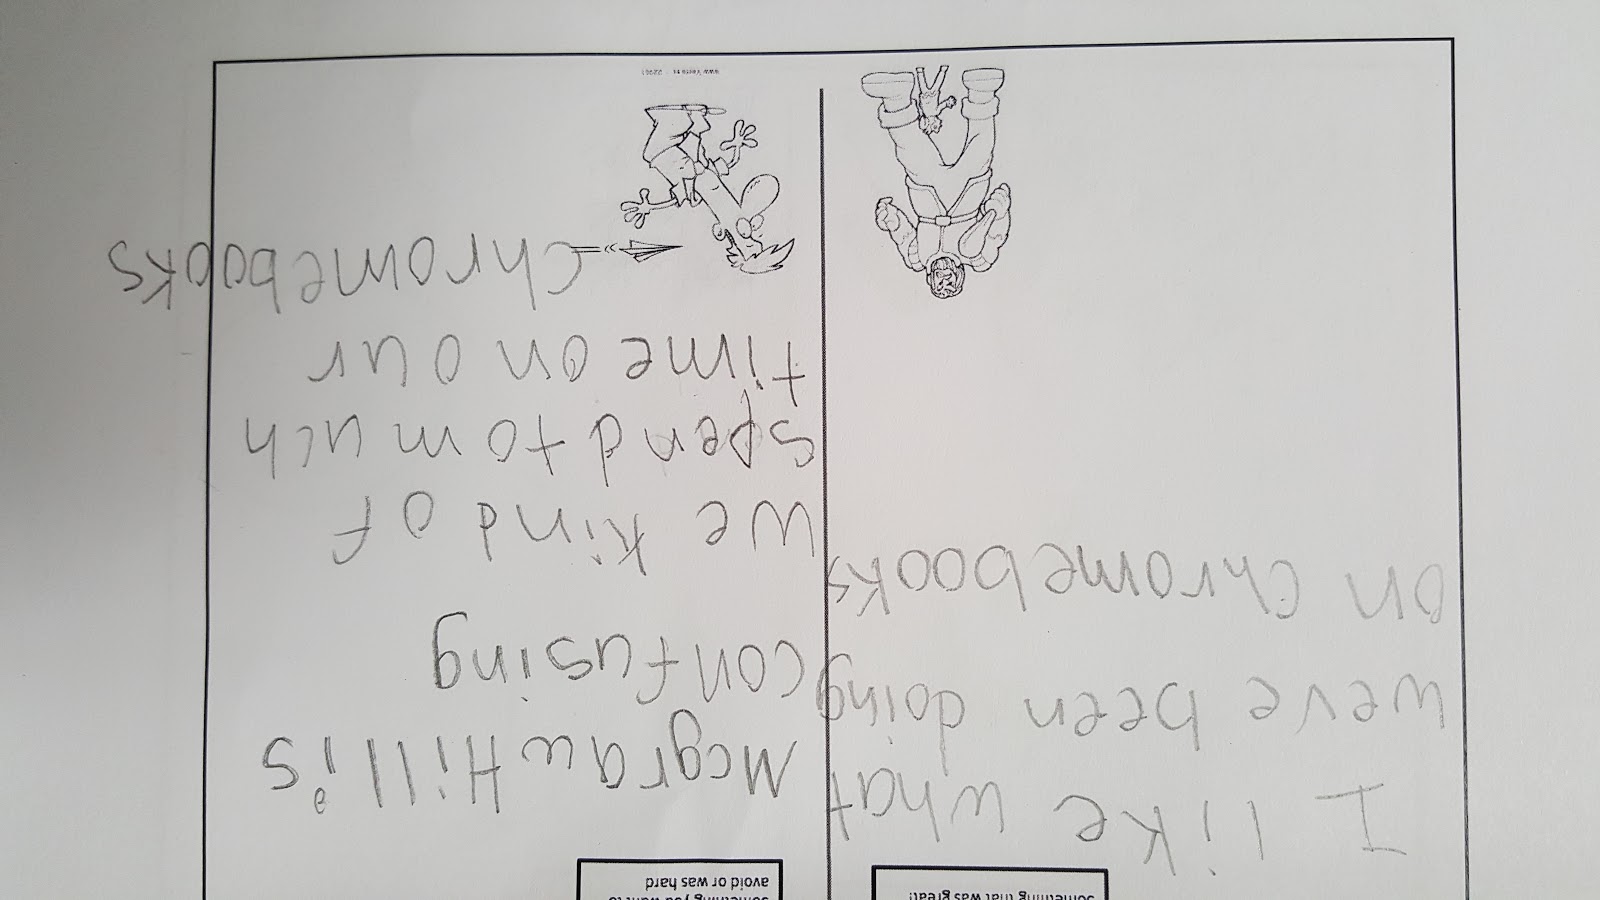 something that was great!
I like what
weve been doing
on Chromebooks
something you want to
avoid or was hard
Mcgraw Hill is
confusing
We kind of
spend to much
time on our
Chromebooks